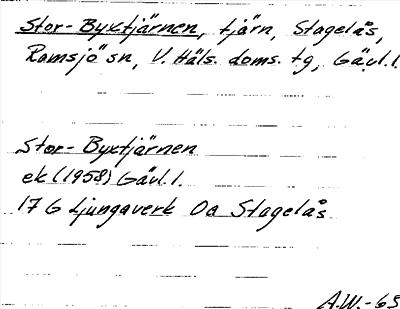 Stor-Byxtjärnen, tjärn, Stagelås,
Ramsjö sn, V. Häls. doms. tg, Gävl. l.
Stor-Byxtjärnen
ek (1958) Gävl. l.
17 G Ljungaverk 0a Stagelås
A.W.-65